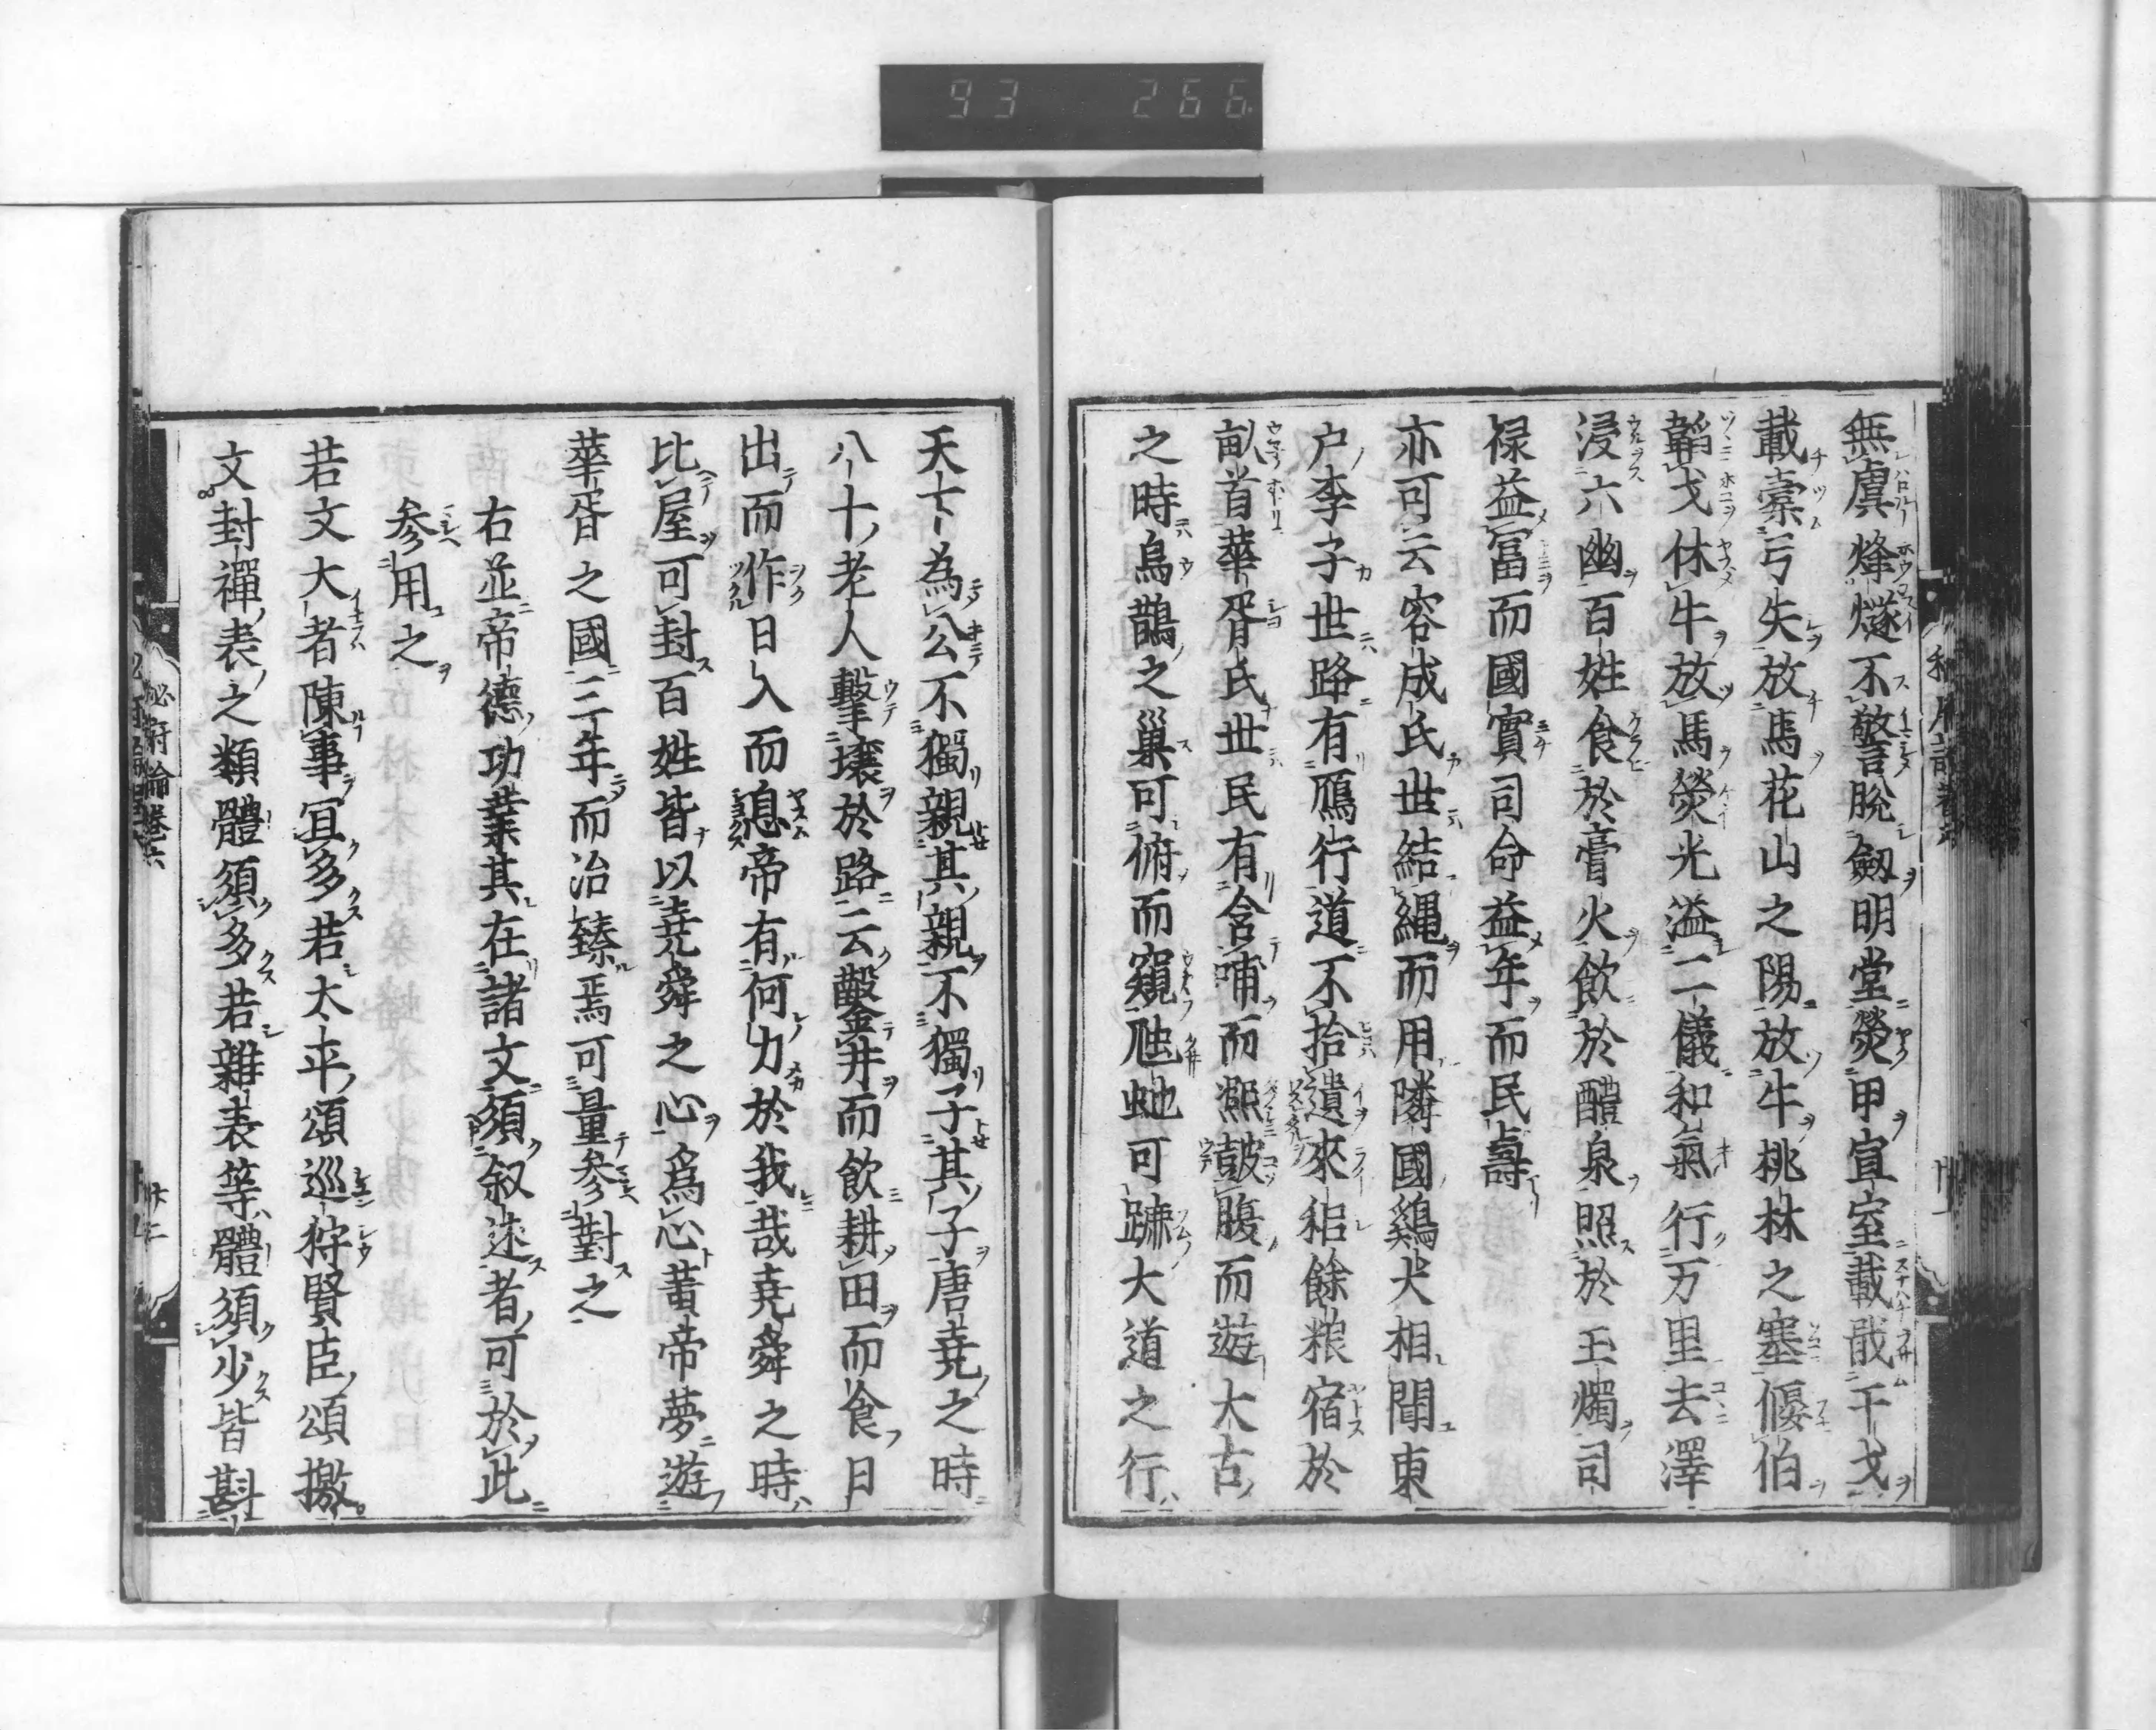 93 266
無虞烽燧不警脫劔明堂熒甲宜室載戢干戈
載櫜弓矢放馬花山之陽放牛桃林之塞偃伯
韜戈休牛放馬熒光溢二儀和氣行万里去澤
浸六幽百姓食於膏火飲於醴泉照於玉燭司
禄益富而國實司命益年而民壽
亦可云容成氏世結繩而用隣國鷄犬相聞東
户李子世路有鴈行道不拾遺來耜餘粮宿於
畝首華胥氏世民有含哺而熈皷腹而遊大古
之時烏鵲之巢可俯而窺虺虵可蹍大道之行
天下為公不獨親其親不獨子其子唐堯之時
八十老人擊壤於路云鑿井而飲耕田而食日
出而作日入而息帝有何力於我哉堯舜之時
比屋可封百姓皆以堯舜之心爲心黄帝夢遊
華胥之國三年而治臻焉可量叅對之
右並帝德功業其在諸文須叙述者可於此
叅用之
若文大者陳事冝多若太平頌巡狩賢臣頌檄
文封禪表之類體須多若雜表等體須少皆斟
秘府論卷六